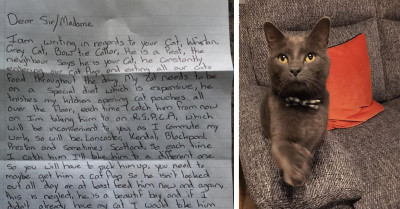 Dear Sir/Madame
I am writing in regards to your Cat,
Grey Cat, Bow tie Collar, He is a Pest, the
neighbour says he is your Cat, he constantly
Cat flap and eating all our Cats
Food throughout the day. My Cat needs to be
on a special diet which is expensive, he
finishes my kitchen opening cat pouches all
over the floor, each time I catch him from now
on I'm taking him to an R.S.P.C.A, which
will be inconvenient to you as I commute my
work, so will be: Lancaster, Kendal, Blackpool,
Preston and sometimes Scotland, so each time
I catch him I'll take him to a different one,
so you will have to pick him up, you need to
maybe get him a cat flap so he isn't locked
out all day or at least feed him now and again,
this is neglect, he is a beautiful boy and if I
didn't already have my cat I would take him